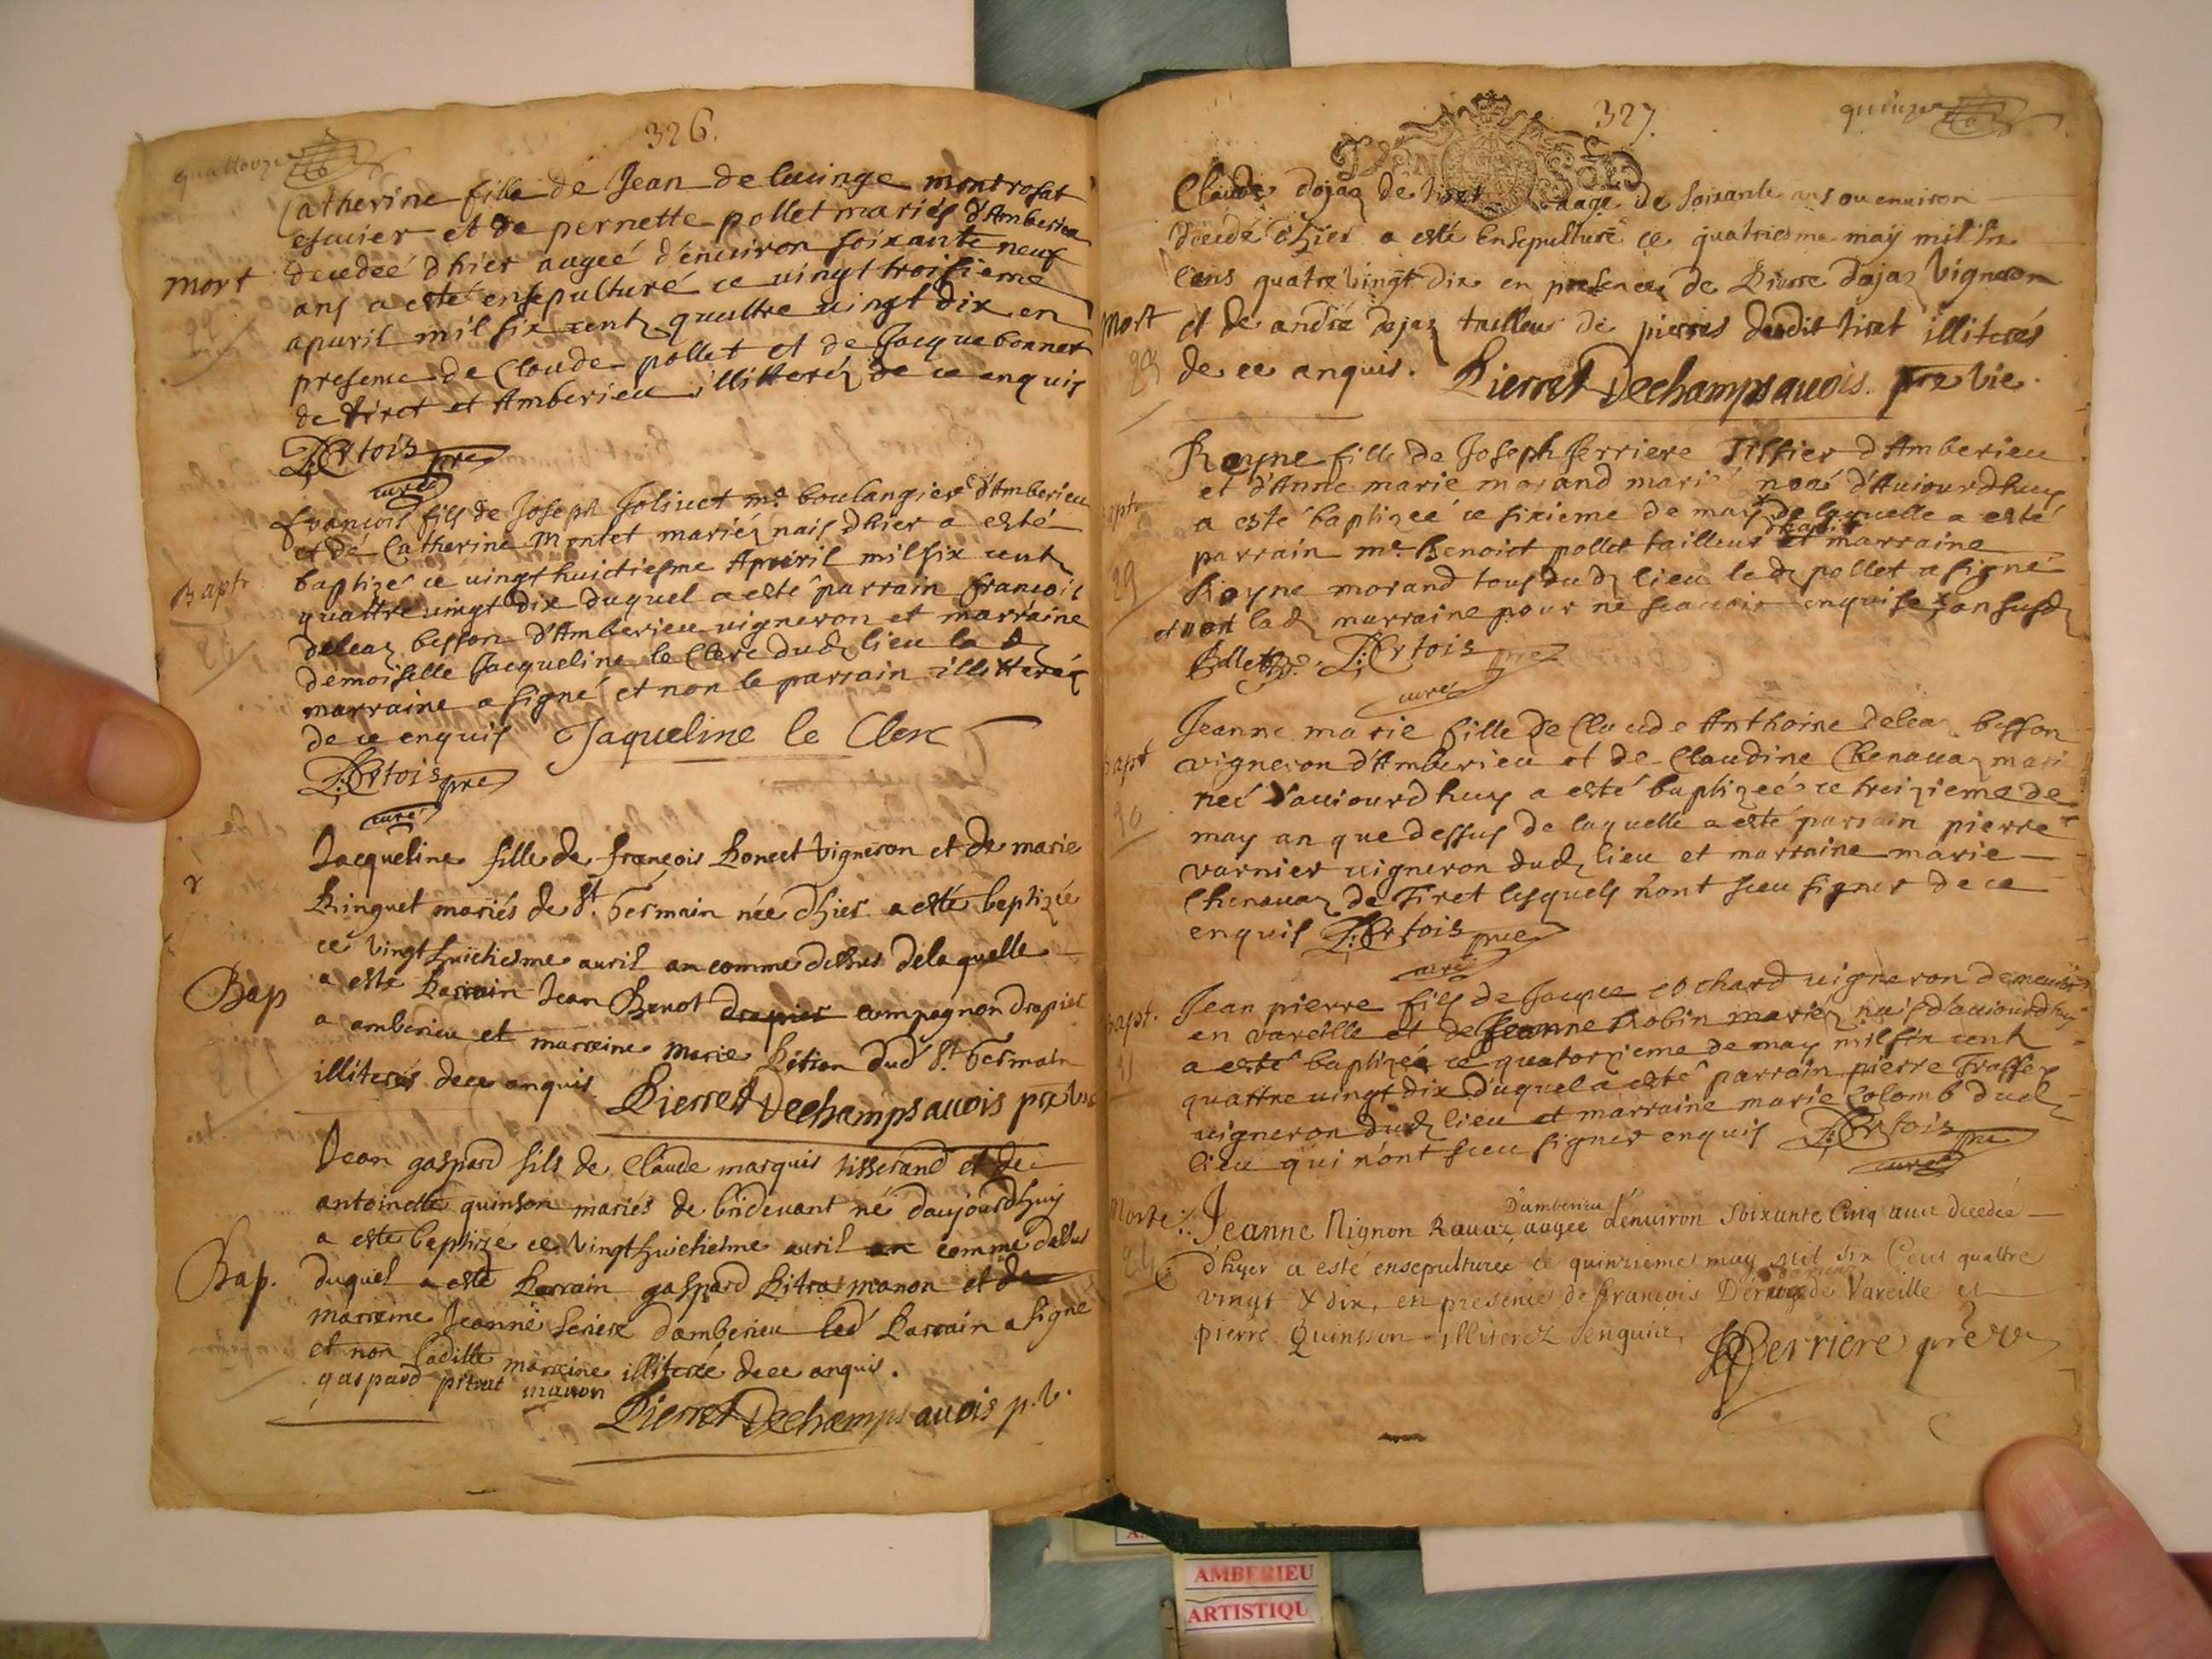 326.
quattorze
Catherine fille de Jean de luinge montrosat
escuier et de pernette pollet mariés d'Amberieu
mort
decedeé d'hier aageé d'enuiron soixante neuf
ans a esté ensepulturé ce uingt troisieme
apuril mil six centz quattre uingt dix en
presence de Claude pollet et de Jacque bonnet
de tiret et Amberieu illitteréz de ce enquis
pre
curé
françois fils de Joseph Joliuet me boulangier d'Amberieu
et de Catherine montet mariéz nais d'hier a esté
Baptr
baptizé ce uingt huictiesme Apuril mil six centz
quattre uingt dix duquel a esté parrain francois
deleaz besson d'Amberieu uigneron et marraine
demoiselle Jacqueline le Clerc dudz lieu la dz
marraine a signé et non le parrain illitteréz
de ce enquis Jaqueline le Clerc
pre
curé
Jacqueline fille de françois Poncet Vigneron et de marie
Ringuet mariés de St. Germain née d'hier a esté baptizée
ce vingt huictiesme auril an comme dessus de laquelle
Bap
a esté Parrain Jean Benot drapier compagnon drapier
a amberieu et marreine marie dud St. Germain
illiterés de ce anquis. Pierret Dechampsauois pre vic
Jean gaspard fils de Claude marquis tisserand et de
antoinette quinson mariés de bridevant né d'aujourdhuy
a esté baptizé ce Vingt huictiesme auril an comme dessus
Bap.
duquel a esté Parrain gaspard Pitrat manon et de
marreine Jeanne d'amberieu led Parrain a signe
et non laditte marreine illiterée de ce anquis.
gaspard pitrat manon
Pierret Dechampsauois p. v.
327.
quinze
Claude dojaz de tiret aagé de soixante ans ou enuiron
decedé d'hier a esté Ensepulturé ce quatriesme may mil six
Cens quatre Vingt dix en presence de Pierre dojaz Vigneron
mort
et de andré dojaz tailleur de pierres dudit tiret illiterés
23
de ce anquis. Pierret Dechampsauois. pre vic.
Reyne fille de Joseph ferriere Tissier d'Amberieu
et d'Anne marie morand marié neé d'Auiourdhuy
bapti
a esté baptizeé ce sixieme de may de laquelle a esté
parrain me Benoict pollet tailleur et marraine
29
Reyne morand tous dudz lieu le dz pollet a signé
et non la dz marraine pour ne scauoir enquise an susdz
Pollet pre
curé
Jeanne marie fille de Claude Anthoine deleaz besson
bapt
vigneron d'Amberieu et de Claudine Chenauaz mari
neé d'auiourdhuy a esté baptizeé ce treizieme de
30
may an que dessus de laquelle a esté parrain pierre
varnier uigneron dudz lieu et marraine marie
Chenauaz de Tiret lesquels n'ont sceu signer de ce
enquis pre
curé
bapt.
Jean pierre fils de Jacque cochard uigneron demeurant
en vareille et de Jeanne Robin mariéz nais d'auiourdhuy
31
a esté baptizeé ce quatorzieme de may mil six centz
quattre uingt dix duquel a esté parrain pierre
uigneron dudz lieu et marraine marie Colomb dudz
lieu qui n'ont sceu signer enquis
pre
curé
D'amberieu
Morte.
Jeanne Nignon Rauaz aagee d'enuiron soixante Cinq ans decedeé
24
d'hyer a esté ensepulturée ce quinzieme may mil six Cens quattre
vingt & dix, en presence de francois de Vareille et
pierre Quinsson illiterez enquis
ferriere pre v
AMBERIEU
ARTISTIQU